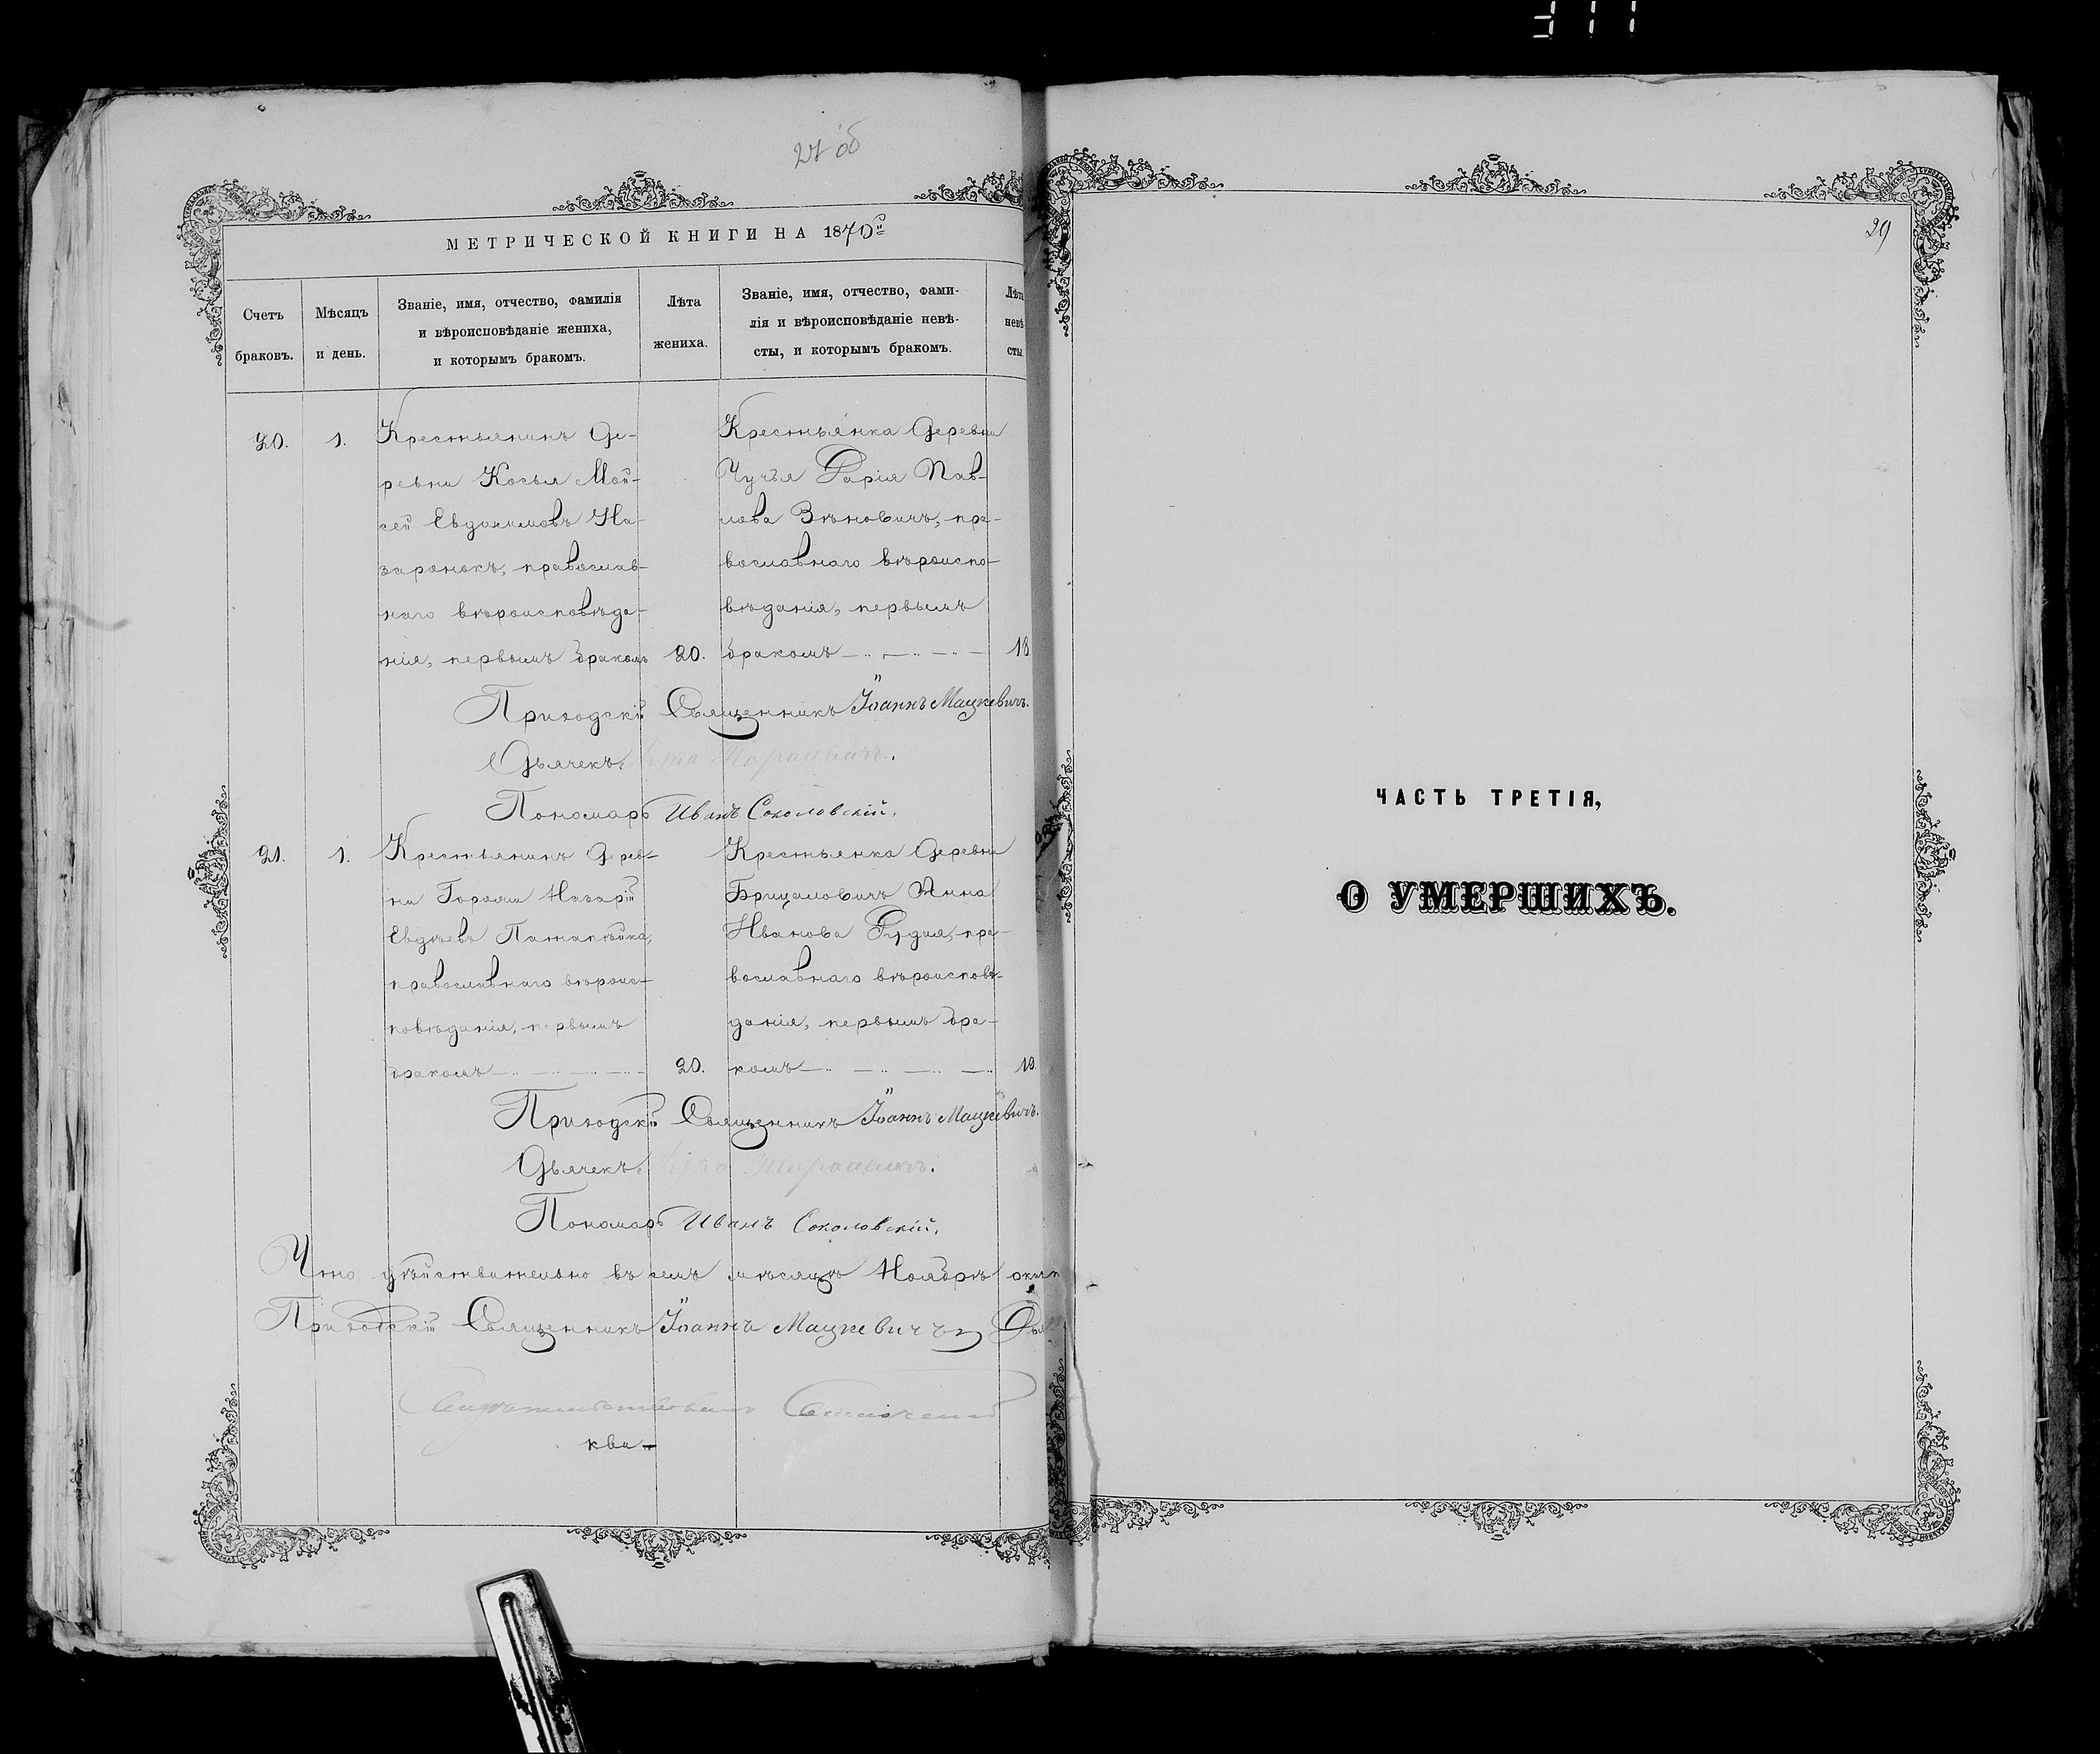 27 об
МЕТРИЧЕСКОЙ КНИГИ НА 1870й
Счетъ браковъ.
Мѣсяцъ и день.
Званіе, имя, отчество, фамилія
и вѣроисповѣданіе жениха,
и которымъ бракомъ.
Лѣта жениха.
Званіе, имя, отчество, фами-
лія и вѣроисповѣданіе невѣ-
сты, и которымъ бракомъ.
Лѣта
невѣ
сты.
20.
1.
Крестьянинъ Де-
ревни Косья Мой-
сей Евдокимовъ На-
заронокъ, православ-
наго вѣроисповѣда-
нія, первымъ бракомъ
20.
Крестьянка Деревни
Чучья Дарія Пав-
лова Зѣновичъ, пра-
вославнаго вѣроиспо-
вѣданія, первымъ
бракомъ
18
Приходскій Священникъ Іоаннъ Мацкевичъ.
Дьячекъ
Пономарь Иванъ Соколовскій.
21.
1.
Крестьянинъ Дерев-
ни Горяли Назарій
Евдѣевъ Патапѣйка,
православнаго вѣроис-
повѣданія, первымъ
бракомъ
20.
Крестьянка Деревни
Брицаловичъ Анна
Иванова Рудая, пра-
вославнаго вѣроисповѣ-
данія, первымъ бра-
комъ
19.
Приходскій Священникъ Іоаннъ Мацкевичъ.
Дьячекъ
Пономарь Иванъ Соколовскій.
Что дѣйствительно въ семъ мѣсяцѣ Ноябрѣ
Приходскій Священникъ Іоаннъ Мацкевичъ
29
ЧАСТЬ ТРЕТІЯ,
О УМЕРШИХЪ.